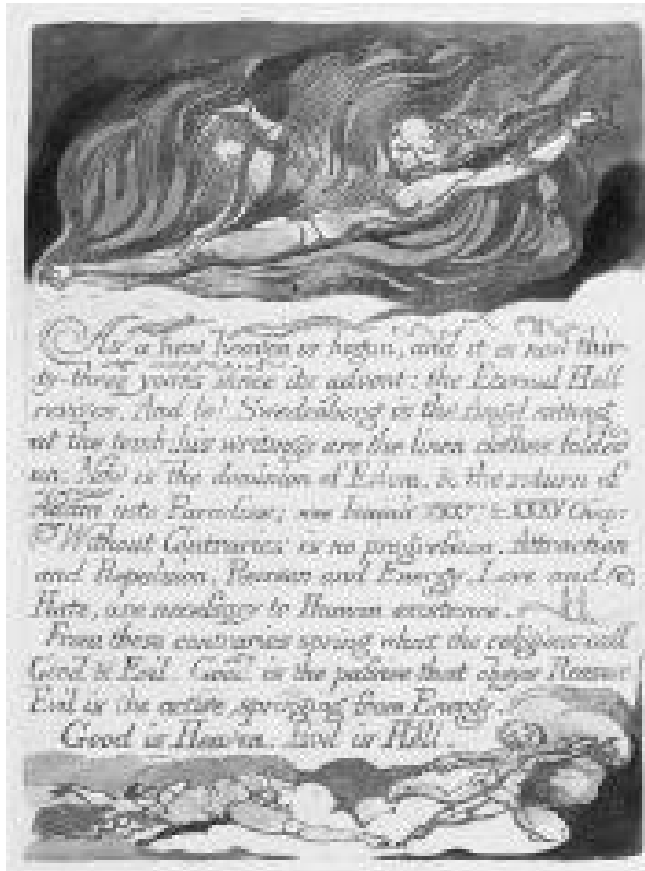 As a new heaven is begun, and it is now thir-
ty-three years since its advent: the Eternal Hell
revives. And lo! Swedenborg is the Angel sitting
at the tomb: his writings are the linen clothes folded
up. Now is the dominion of Edom, & the return of
Adam into Paradise; see Isaiah XXXIV & XXXV Chap:
Without Contraries is no progression. Attraction
and Repulsion, Reason and Energy, Love and
Hate, are necessary to Human existence.
From these contraries spring what the religious call
Good & Evil. Good is the passive that obeys Reason
Evil is the active springing from Energy.
Good is Heaven. Evil is Hell.